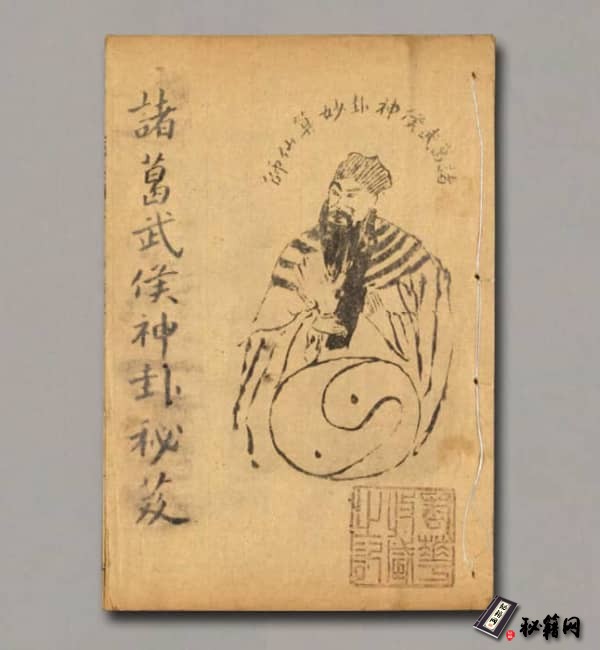 諸葛武侯神卦秘芨
諸葛武侯神卦妙算仙師
秘籍网